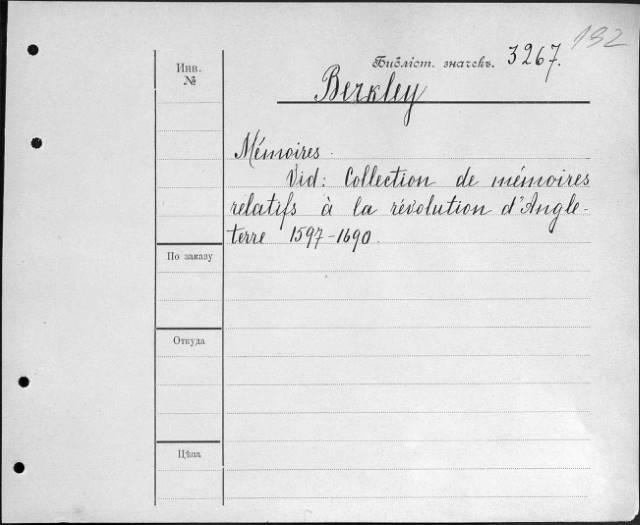 192
Библіот. значекъ. 3267.
Инв.
№
Berkley
Mémoires.
Vid: Collection de mémoires
relatifs à la révolution d'Angle-
terre 1597-1690.
По заказу
Откуда
Цѣна